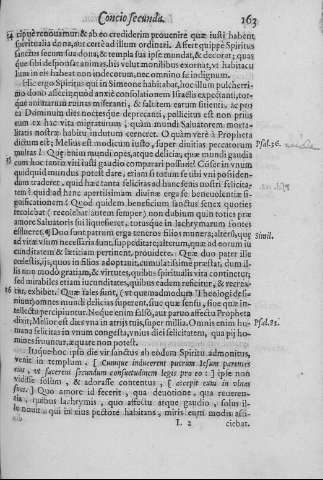 Concio secunda. 163
cipuè renouamur: & ab eo crediderim prouenire quæ iusti habent
spiritualia dona, aut certè ad illum ordinari. Assert quippe Spiritus
sanctus secum sua dona, & templa sui ipse mundat, & decorat; quas
que sibi desponsat animas, his velut monilibus exornat, vt habitacu
lum in eis habeat non indecorum, nec omnino se indignum.
Hic ergo Spiritus qui in Simeone habitabat, hoc illum pulcherri-
mo dono affecit, quod anxiè consolationem Israelis expectanti, tot-
que animarum ruinas miseranti, & salutem earum sitienti, ac pro
ea Dominum dies noctesque deprecanti, pollicitus est non prius
eum ex hac vita migraturum; quàm mundi Saluatorem morta-
litatis nostræ habitu indutum cerneret. O quàm verè à Propheta
dictum est; Melius est modicum iusto, super diuitias peccatorum Psal. 36.
multas! Quę huius mundi opes, atque deliciæ, quæ mundi gaudia
cum hoc tanto viri iusti gaudio comparari possunt!
quidquid mundus potest dare, etiam si totum se tibi vni possiden-
dum traderet, quid hac tanta felicitas ad hanc senis nostri felicita-
tem? quid ad hanc apertissimam diuinæ erga se beneuolentiæ si-
gnificationem? Quod quidem beneficium sanctus senex quoties
recolebat (recolebat autem semper) non dubium quin toties præ
amore Saluatoris sui liquesceret, totusque in lachrymarum fontes
efflueret. ¶ Duo sunt patrum erga teneros filios munera; alterũ, quę Simil.
ad vitæ vsum necessaria sunt, suppeditare; alterum, quæ ad eorum iu
cunditatem & lætitiam pertinent, prouidere. Quæ duo pater ille
cœlestis, ijs, quos in filios adoptauit, cumulatissimè præstat, dum il-
lis non modò gratiam, & virtutes, quibus spiritualis vita continetur;
sed mirabiles etiam iucunditates, quibus eadem reficitur, & recrea-
tur, exhibet. Quæ tales sunt, (vt quemadmodum Theologi de si-
niunt) omnes mundi delicias superent, siue quæ sensu, siue quæ in-
tellectu percipiuntur. Neque enim falsò, aut paruo affectu Propheta
dixit; Melior est dies vna in atrijs tuis, super millia. Omnis enim hu- Psal. 83.
mana felicitas in vnum congesta, vnius diei felicitatem, qua pij ho-
mines fruuntur, æquare non potest.
Itaque hoc ipso die vir sanctus ab eodem Spiritu admonitus,
venit in templum. [ Cumque inducerent puerum Iesum parentes
eius, vt facerent secundum consuetudinem legis pro eo: ] ipse non
vidisse solùm, & adorasse contentus, [ accepit eum in vlnas
suas. ] Quo amore id fecerit, qua deuotione, qua reueren-
tia, quibus lachrymis, quo affectu atque gaudio, solus il-
le nouit qui in eius pectore habitans, miris eum modis affi-
L 2 ciebat.